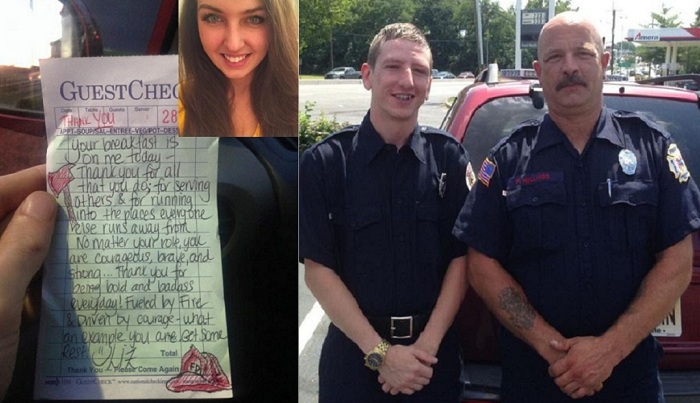 GUESTCHEC
Date Table Guests Server
THANK YOU 28
APPT-SOUP/SAL-ENTREE-VEG/POT-DES
Your breakfast is
on me today -
Thank you for all
that you do; for serving
others & for running
into the places everyone
else runs away from.
No matter your role, you
are courageous, brave, and
strong... Thank you for
being bold and badass
everyday! Fueled by Fire
& Driven by courage - what
an example you are. Get some
Rest!
Liz
Total
FD
Thank You - Please Come Again
GUESTCHECK